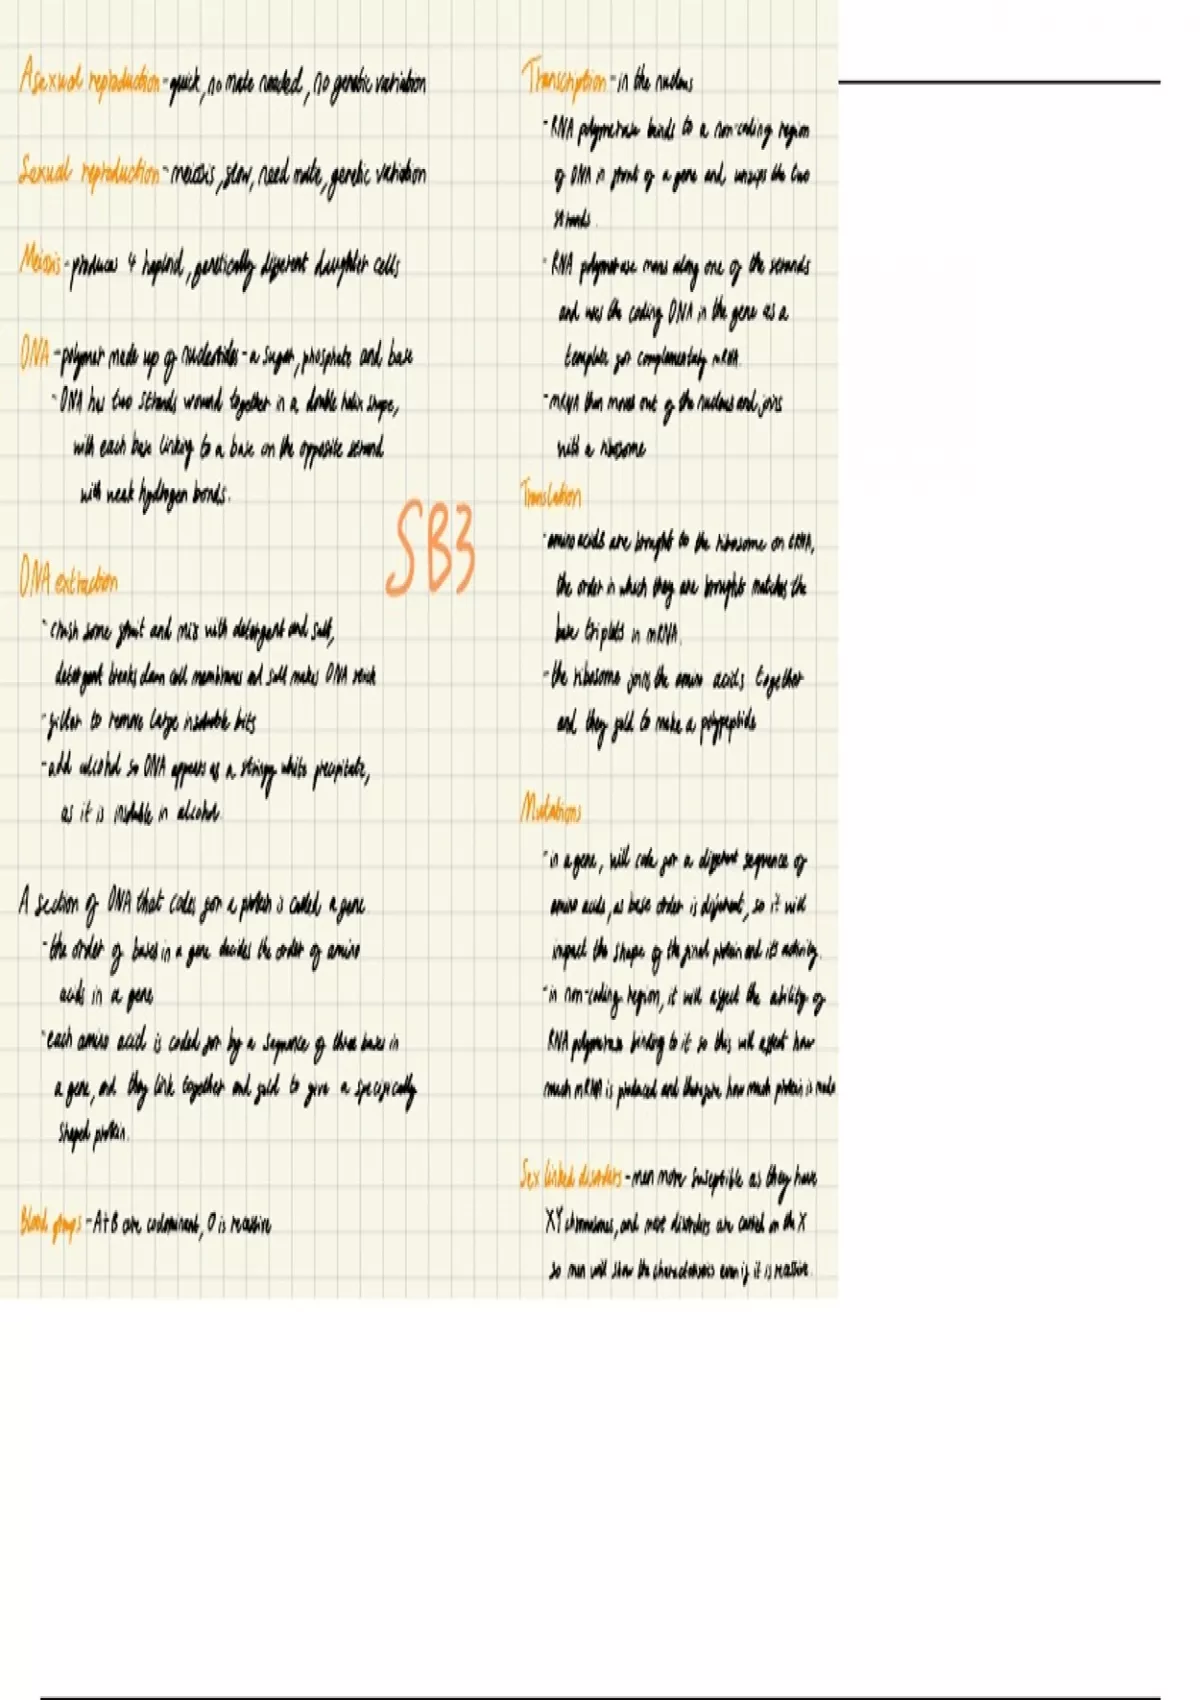 Asexual reproduction - quick, no mate needed, no genetic variation
Sexual reproduction - meiosis, slow, need mate, genetic variation
Meiosis - produces 4 haploid, genetically different daughter cells
DNA - polymer made up of nucleotides - a sugar, phosphate and base
- DNA has two strands wound together in a double helix shape,
with each base linking to a base on the opposite strand
with weak hydrogen bonds.
SB3
DNA extraction
- crush some fruit and mix with detergent and salt,
detergent breaks down cell membranes and salt makes DNA stick
- filter to remove large insoluble bits
- add alcohol so DNA appears as a stringy white precipitate,
as it is insoluble in alcohol.
A section of DNA that codes for a protein is called a gene.
- the order of bases in a gene decides the order of amino
acids in a gene
- each amino acid is coded for by a sequence of three bases in
a gene, and they link together and fold to give a specifically
shaped protein.
Blood groups - A + B are codominant, O is recessive
Transcription - in the nucleus
- RNA polymerase binds to a non-coding region
of DNA in front of a gene and unzips the two
strands.
- RNA polymerase moves along one of the strands
and uses the coding DNA in the gene as a
template for complementary mRNA.
- mRNA then moves out of the nucleus and joins
with a ribosome
Translation
- amino acids are brought to the ribosome on tRNA,
the order in which they are brought matches the
base triplets in mRNA.
- the ribosome joins the amino acids together
and they fold to make a polypeptide
Mutations
- in a gene, will code for a different sequence of
amino acids, as base order is different, so it will
impact the shape of the final protein and its activity.
- in non-coding region, it will affect the ability of
RNA polymerase binding to it so this will affect how
much mRNA is produced and therefore how much protein is made
Sex linked disorders - men more susceptible as they have
XY chromosomes, and most disorders are carried on the X
so men will show the characteristics even if it is recessive.